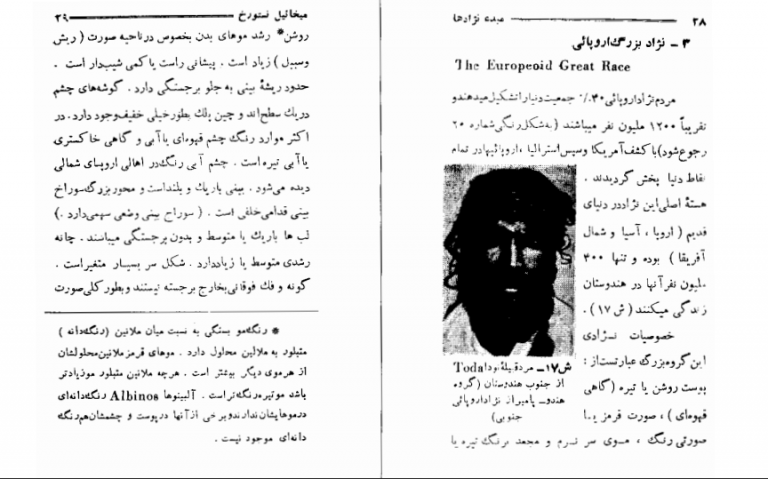 ۲۸ مبدء نژادها
۳ - نژاد بزرگ اروپائی
The Europeoid Great Race
مردم نژاد اروپائی ۴۰٪ جمعیت دنیا را تشکیل میدهند و
تقریباً ۱۲۰۰ ملیون نفر میباشند (به شکل رنگی شماره ۲۵
رجوع شود) با کشف آمریکا و سپس استرالیا ، اروپائیها در تمام
نقاط دنیا پخش گردیدند .
هستهٔ اصلی این نژاد در دنیای
قدیم ( اروپا ، آسیا و شمال
آفریقا ) بوده و تنها ۳۰۰
ملیون نفر آنها در هندوستان
زندگی میکنند ( ش ۱۷ ) .
خصوصیات نژادی
این گروه بزرگ عبارتست از :
پوست روشن یا تیره (گاهی
قهوه‌ای ) ، صورت قرمز یا
صورتی رنگ ، موی سر نرم و مجعد برنگ تیره یا
ش۱۷ - مرد قبیلهٔ تودا Toda
از جنوب هندوستان (گروه
هندو - پامیر از نژاد اروپائی
جنوبی)
میخائیل نستورخ ۲۹
روشن* رشد موهای بدن بخصوص در ناحیه صورت ( ریش
وسبیل ) زیاد است . پیشانی راست یا کمی شیب‌دار است .
حدود ریشهٔ بینی به جلو برجستگی دارد . گوشه‌های چشم
در یك سطح‌اند و چین پلك بطور خیلی خفیف وجود دارد . در
اکثر موارد رنگ چشم قهوه‌ای یا آبی و گاهی خاکستری
یا آبی تیره است . چشم آبی رنگ در اهالی اروپای شمالی
دیده می‌شود . بینی باریك و بلند است و محور بزرگ سوراخ
بینی قدامی خلفی است . ( سوراخ بینی وضعی سهمی دارد . )
لب ها باریك یا متوسط و بدون برجستگی میباشند . چانه
رشدی متوسط یا زیاد دارد . شکل سر بسیار متغیر است .
گونه و فك فوقانی بخارج برجسته نیستند و بطور کلی صورت
* رنگ مو بستگی به نسبت میان ملانین (رنگ دانه )
متبلور به ملانین محلول دارد . موهای قرمز ملانین محلولشان
از هر موی دیگر بیشتر است . هرچه ملانین متبلور مو زیادتر
باشد مو تیره رنگ‌تر است . آلبینوها Albinos رنگ دانه‌ای
در موهایشان ندارند و برخی از آنها در پوست و چشمشان هم رنگ
دانه‌ای موجود نیست .